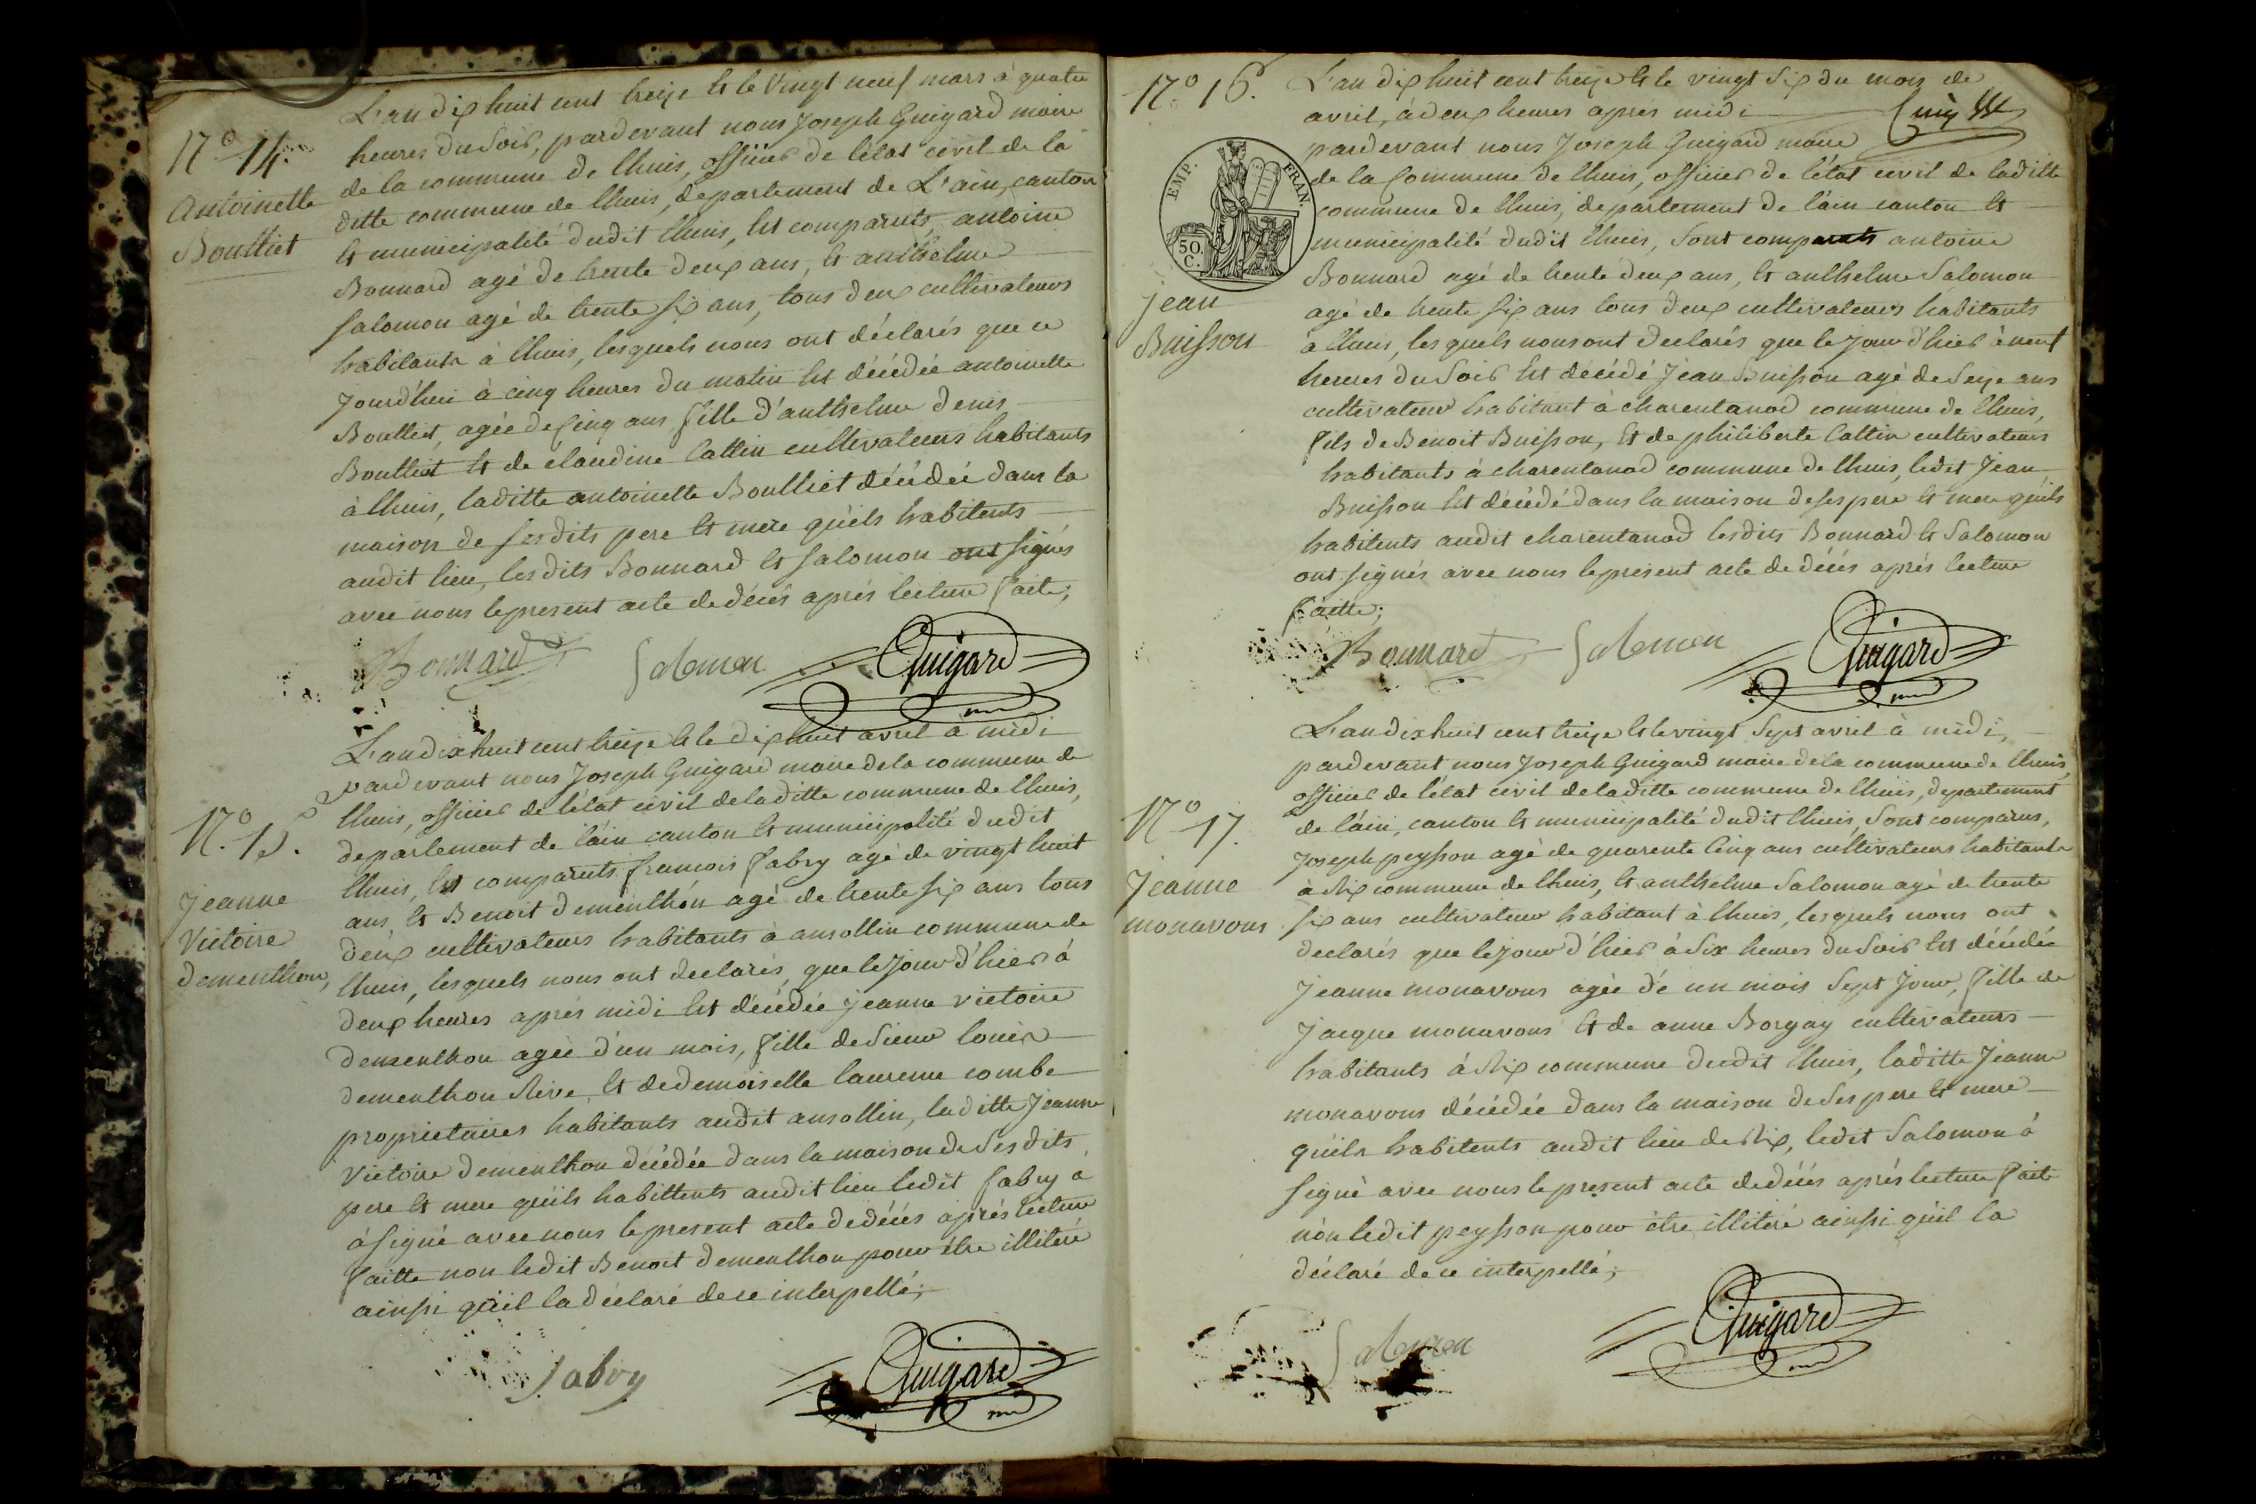 N.º 14.
Antoinette
Boulliet
L'an dix huit cent treize et le vingt neuf mars à quatre
heures du soir, pardevant nous Joseph Guigard maire
de la commune de lhuis, officier de l'état civil de la
ditte commune de lhuis, département de L'ain, canton
et municipalité dudit lhuis, est comparuts, antoine
Bonnard agé de trente deux ans, et anthelme
Salomon agé de trente six ans, tous deux cultivateurs
habitants à lhuis, lesquels nous ont déclarés que ce
jourd'hui à cinq heures du matin est décédée antoinette
Boulliet, agée de cinq ans fille d'anthelme denis
Boulliet et de claudine Cattin cultivateurs habitants
à lhuis, laditte antoinette Boulliet décédée dans la
maison de sesdits pere et mere qu'ils habitents
audit lieu, lesdits Bonnard et Salomon ont signés
avec nous le present acte de décés aprés lecture faite;
Bonnard Salomon Guigard
N.º 15.
Jeanne
Victoire
dementhon,
L'an dix huit cent treize et le dix huit avril à midi
pardevant nous Joseph Guigard maire de la commune de
lhuis, officier de l'état civil de laditte commune de lhuis,
departement de l'ain canton et municipalité dudit
lhuis, est comparuts francois fabry agé de vingt huit
ans, et Benoit dementhon agé de trente six ans tous
deux cultivateurs habitants à ansollin commune de
lhuis, lesquels nous ont declarés, que le jour d'hier à
deux heures aprés midi est décédée jeanne victoire
dementhon agée d'un mois, fille de Sieur louis
dementhon Rive, et de demoiselle laurence combe
proprietaires habitants audit ansollin, laditte Jeanne
Victoire dementhon décédée dans la maison de sesdits
pere et mere qu'ils habittents audit lieu ledit fabry à
à signé avec nous le present acte de décés aprés lecture
faitte non ledit Benoit dementhon pour être illiteré
ainsi qu'il la déclaré de ce interpellé;
fabry Guigard
N.º 16.
EMP. FRAN.
50 C.
Jean
Buisson
L'an dix huit cent treize et le vingt six du mois de
avril, à deux heures apres midi
pardevant nous Joseph Guigard maire
de la Commune de lhuis, officier de l'état civil de laditte
commune de lhuis, departement de l'ain canton et
municipalité dudit lhuis, sont comparuts antoine
Bonnard agé de trente deux ans, et anthelme Salomon
agé de trente six ans tous deux cultivateurs habitants
à lhuis, lesquels nous ont declarés que le jour d'hier à neuf
heures du soir est décédé Jean Buisson agé de seize ans
cultivateur habitant à charentanod commune de lhuis,
fils de Benoit Buisson, et de philiberte Cattin cultivateurs
habitants à charentanod commune de lhuis, ledit Jean
Buisson est décédé dans la maison de ses pere et mere qu'ils
habitents audit charentanod lesdits Bonnard et Salomon
ont signés avec nous le present acte de décés aprés lecture
faitte;
Bonnard Salomon Guigard
N.º 17.
Jeanne
monavous
L'an dix huit cent treize et le vingt sept avril à midi,
pardevant nous Joseph Guigard maire de la commune de lhuis,
officier de l'état civil de laditte commune de lhuis, departement
de l'ain, canton et municipalité dudit lhuis, sont comparus,
Joseph peysson agé de quarente cinq ans cultivateurs habitants
à Rix commune de lhuis, et anthelme Salomon agé de trente
six ans cultivateur habitant à lhuis, lesquels nous ont
declarés que le jour d'hier à six heures du soir est décédée
Jeanne monavous agée de un mois sept jour, fille de
Jacque monavous et de anne Borgay cultivateurs
habitants à Rix commune dudit lhuis, laditte Jeanne
monavous décédée dans la maison de ses pere et mere
qu'ils habitents audit lieu de Rix, ledit Salomon à
signé avec nous le present acte de décés aprés lecture faite
non ledit peysson pour être illiteré ainsi qu'il la
déclaré de ce interpellé;
Salomon Guigard